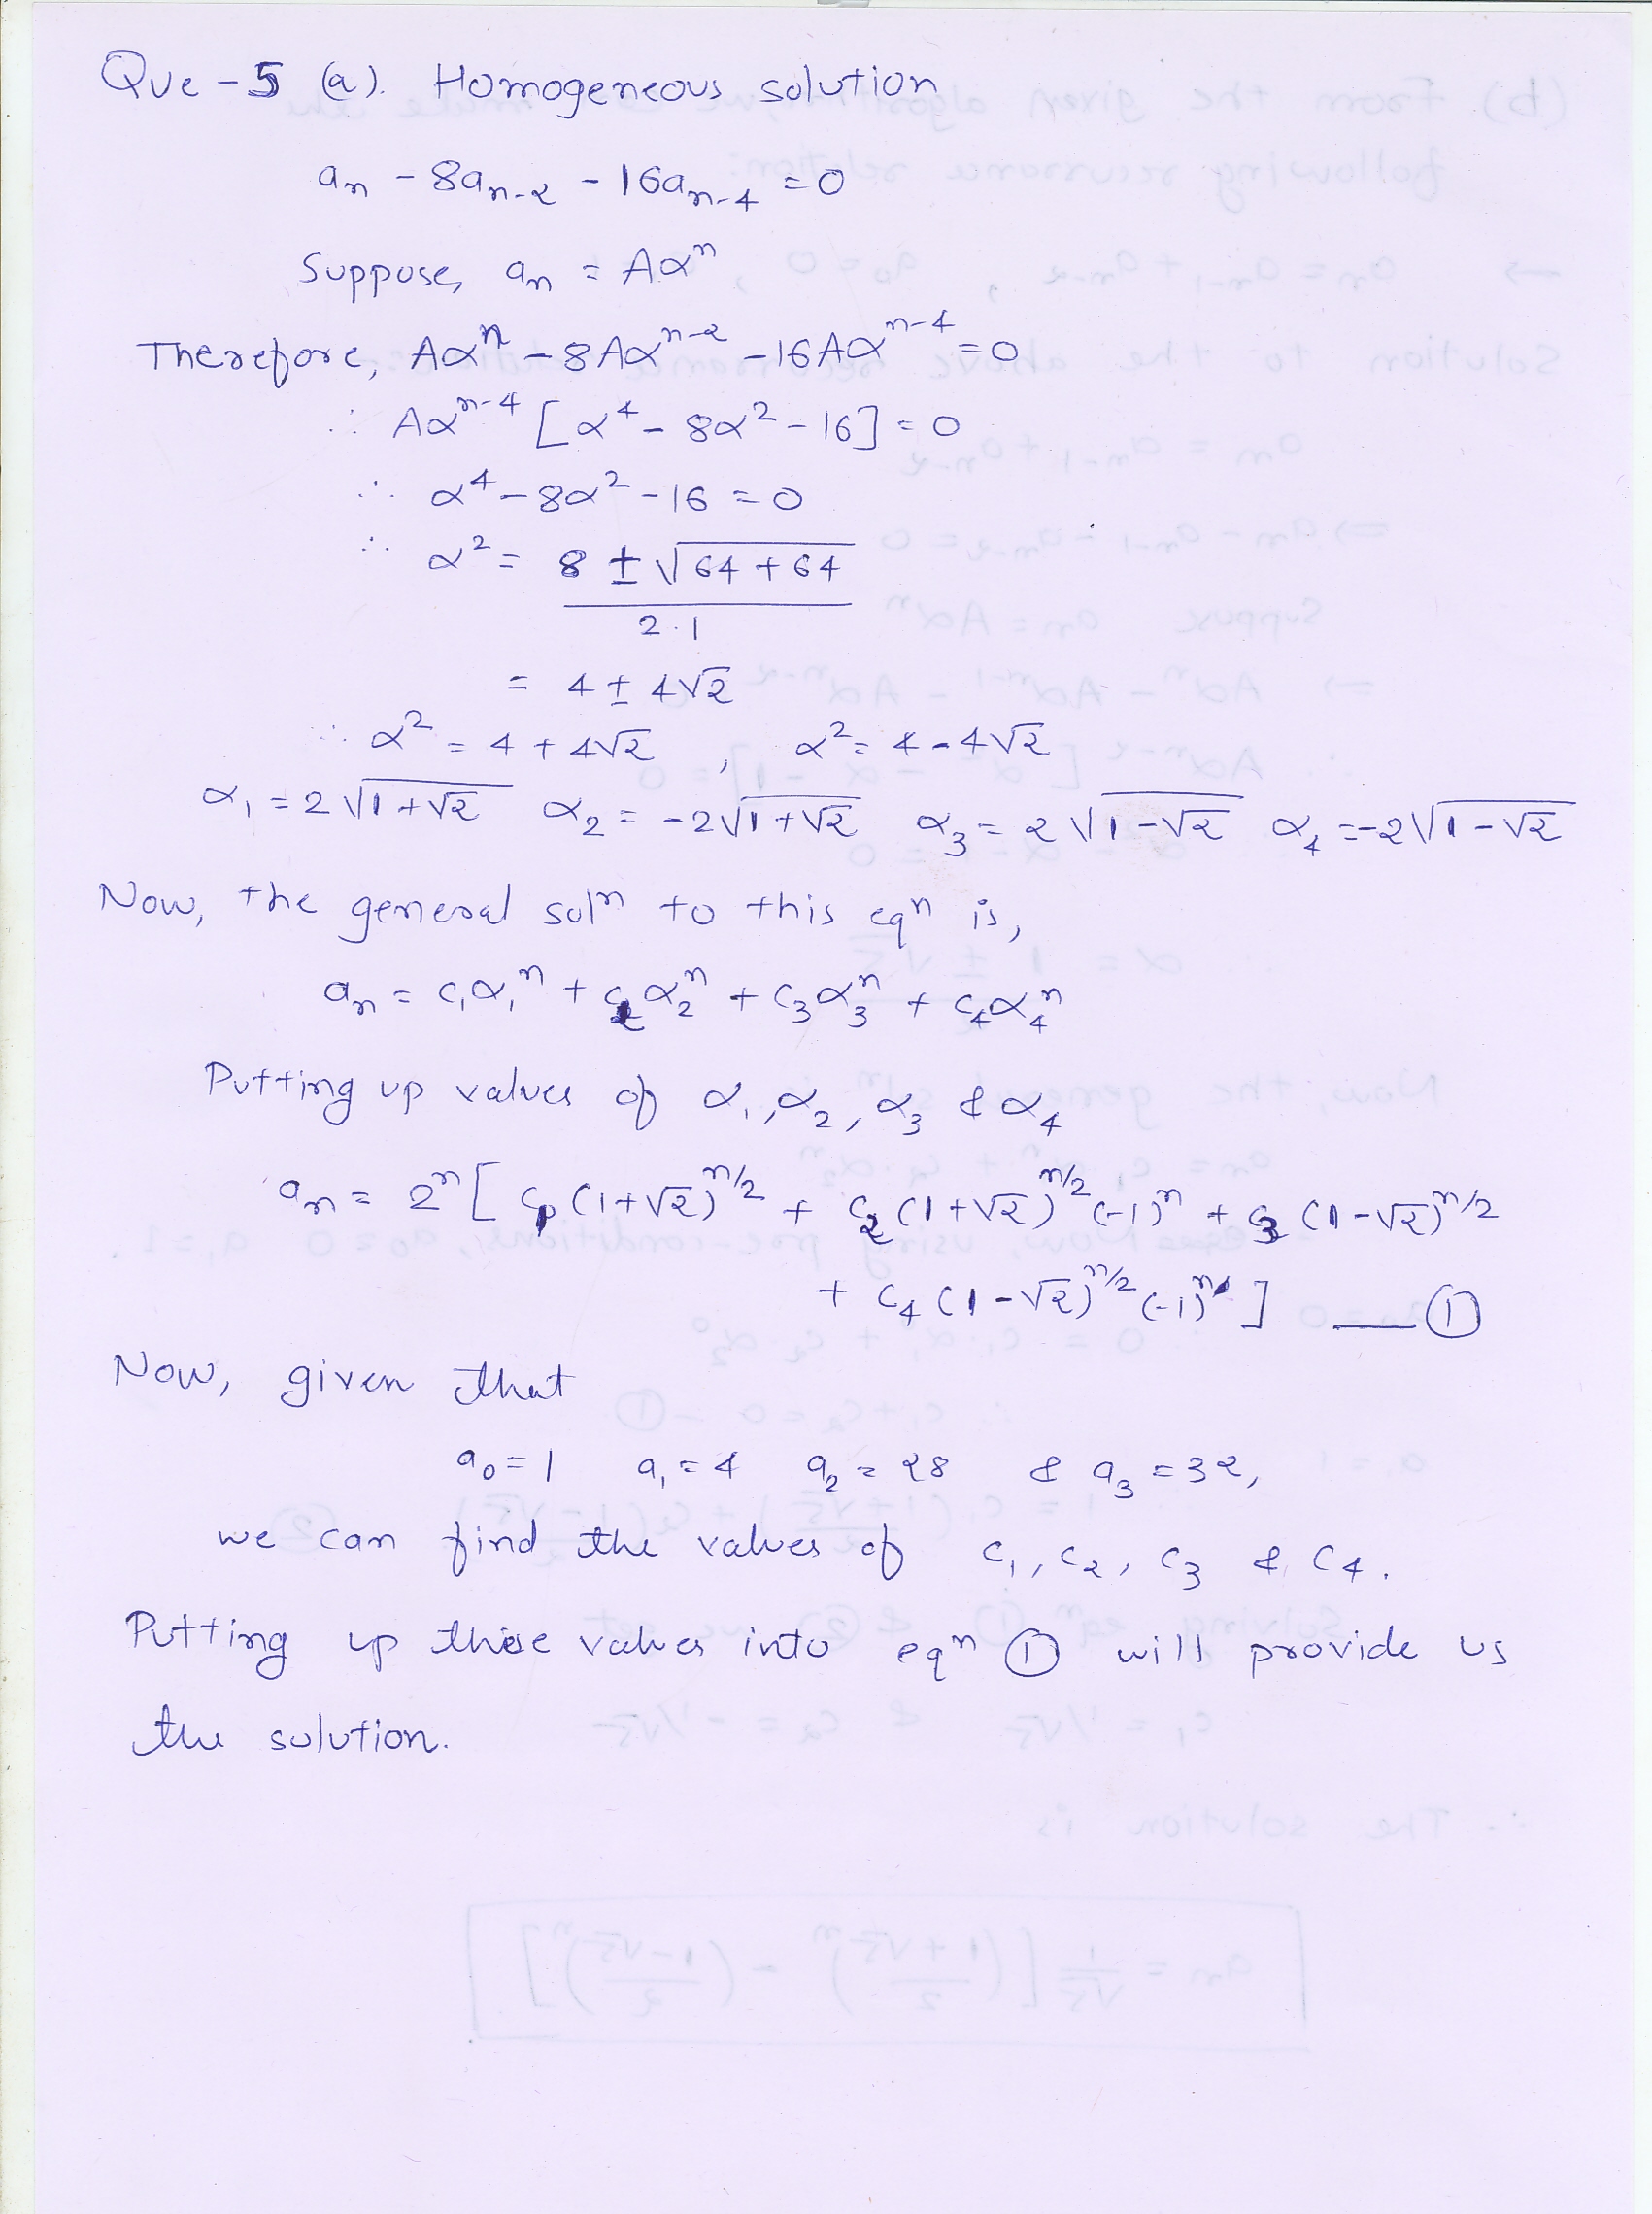 Que - 5 (a). Homogeneous solution
aₙ - 8aₙ₋₂ - 16aₙ₋₄ = 0
Suppose, aₙ = Aαⁿ
Therefore, Aαⁿ - 8Aαⁿ⁻² - 16Aαⁿ⁻⁴ = 0
∴ Aαⁿ⁻⁴ [α⁴ - 8α² - 16] = 0
∴ α⁴ - 8α² - 16 = 0
∴ α² = 8 ± √(64 + 64)
2·1
= 4 ± 4√2
∴ α² = 4 + 4√2 , α² = 4 - 4√2
α₁ = 2√(1+√2) α₂ = -2√(1+√2) α₃ = 2√(1-√2) α₄ = -2√(1-√2)
Now, the general solⁿ to this eqⁿ is,
aₙ = c₁α₁ⁿ + c₂α₂ⁿ + c₃α₃ⁿ + c₄α₄ⁿ
Putting up values of α₁, α₂, α₃ & α₄
aₙ = 2ⁿ [ c₁ (1+√2)^(n/2) + c₂ (1+√2)^(n/2) (-1)ⁿ + c₃ (1-√2)^(n/2)
+ c₄ (1-√2)^(n/2) (-1)ⁿ ] — ①
Now, given that
a₀ = 1 a₁ = 4 a₂ = 28 & a₃ = 32,
we can find the values of c₁, c₂, c₃ & c₄.
Putting up these values into eqⁿ ① will provide us
the solution.